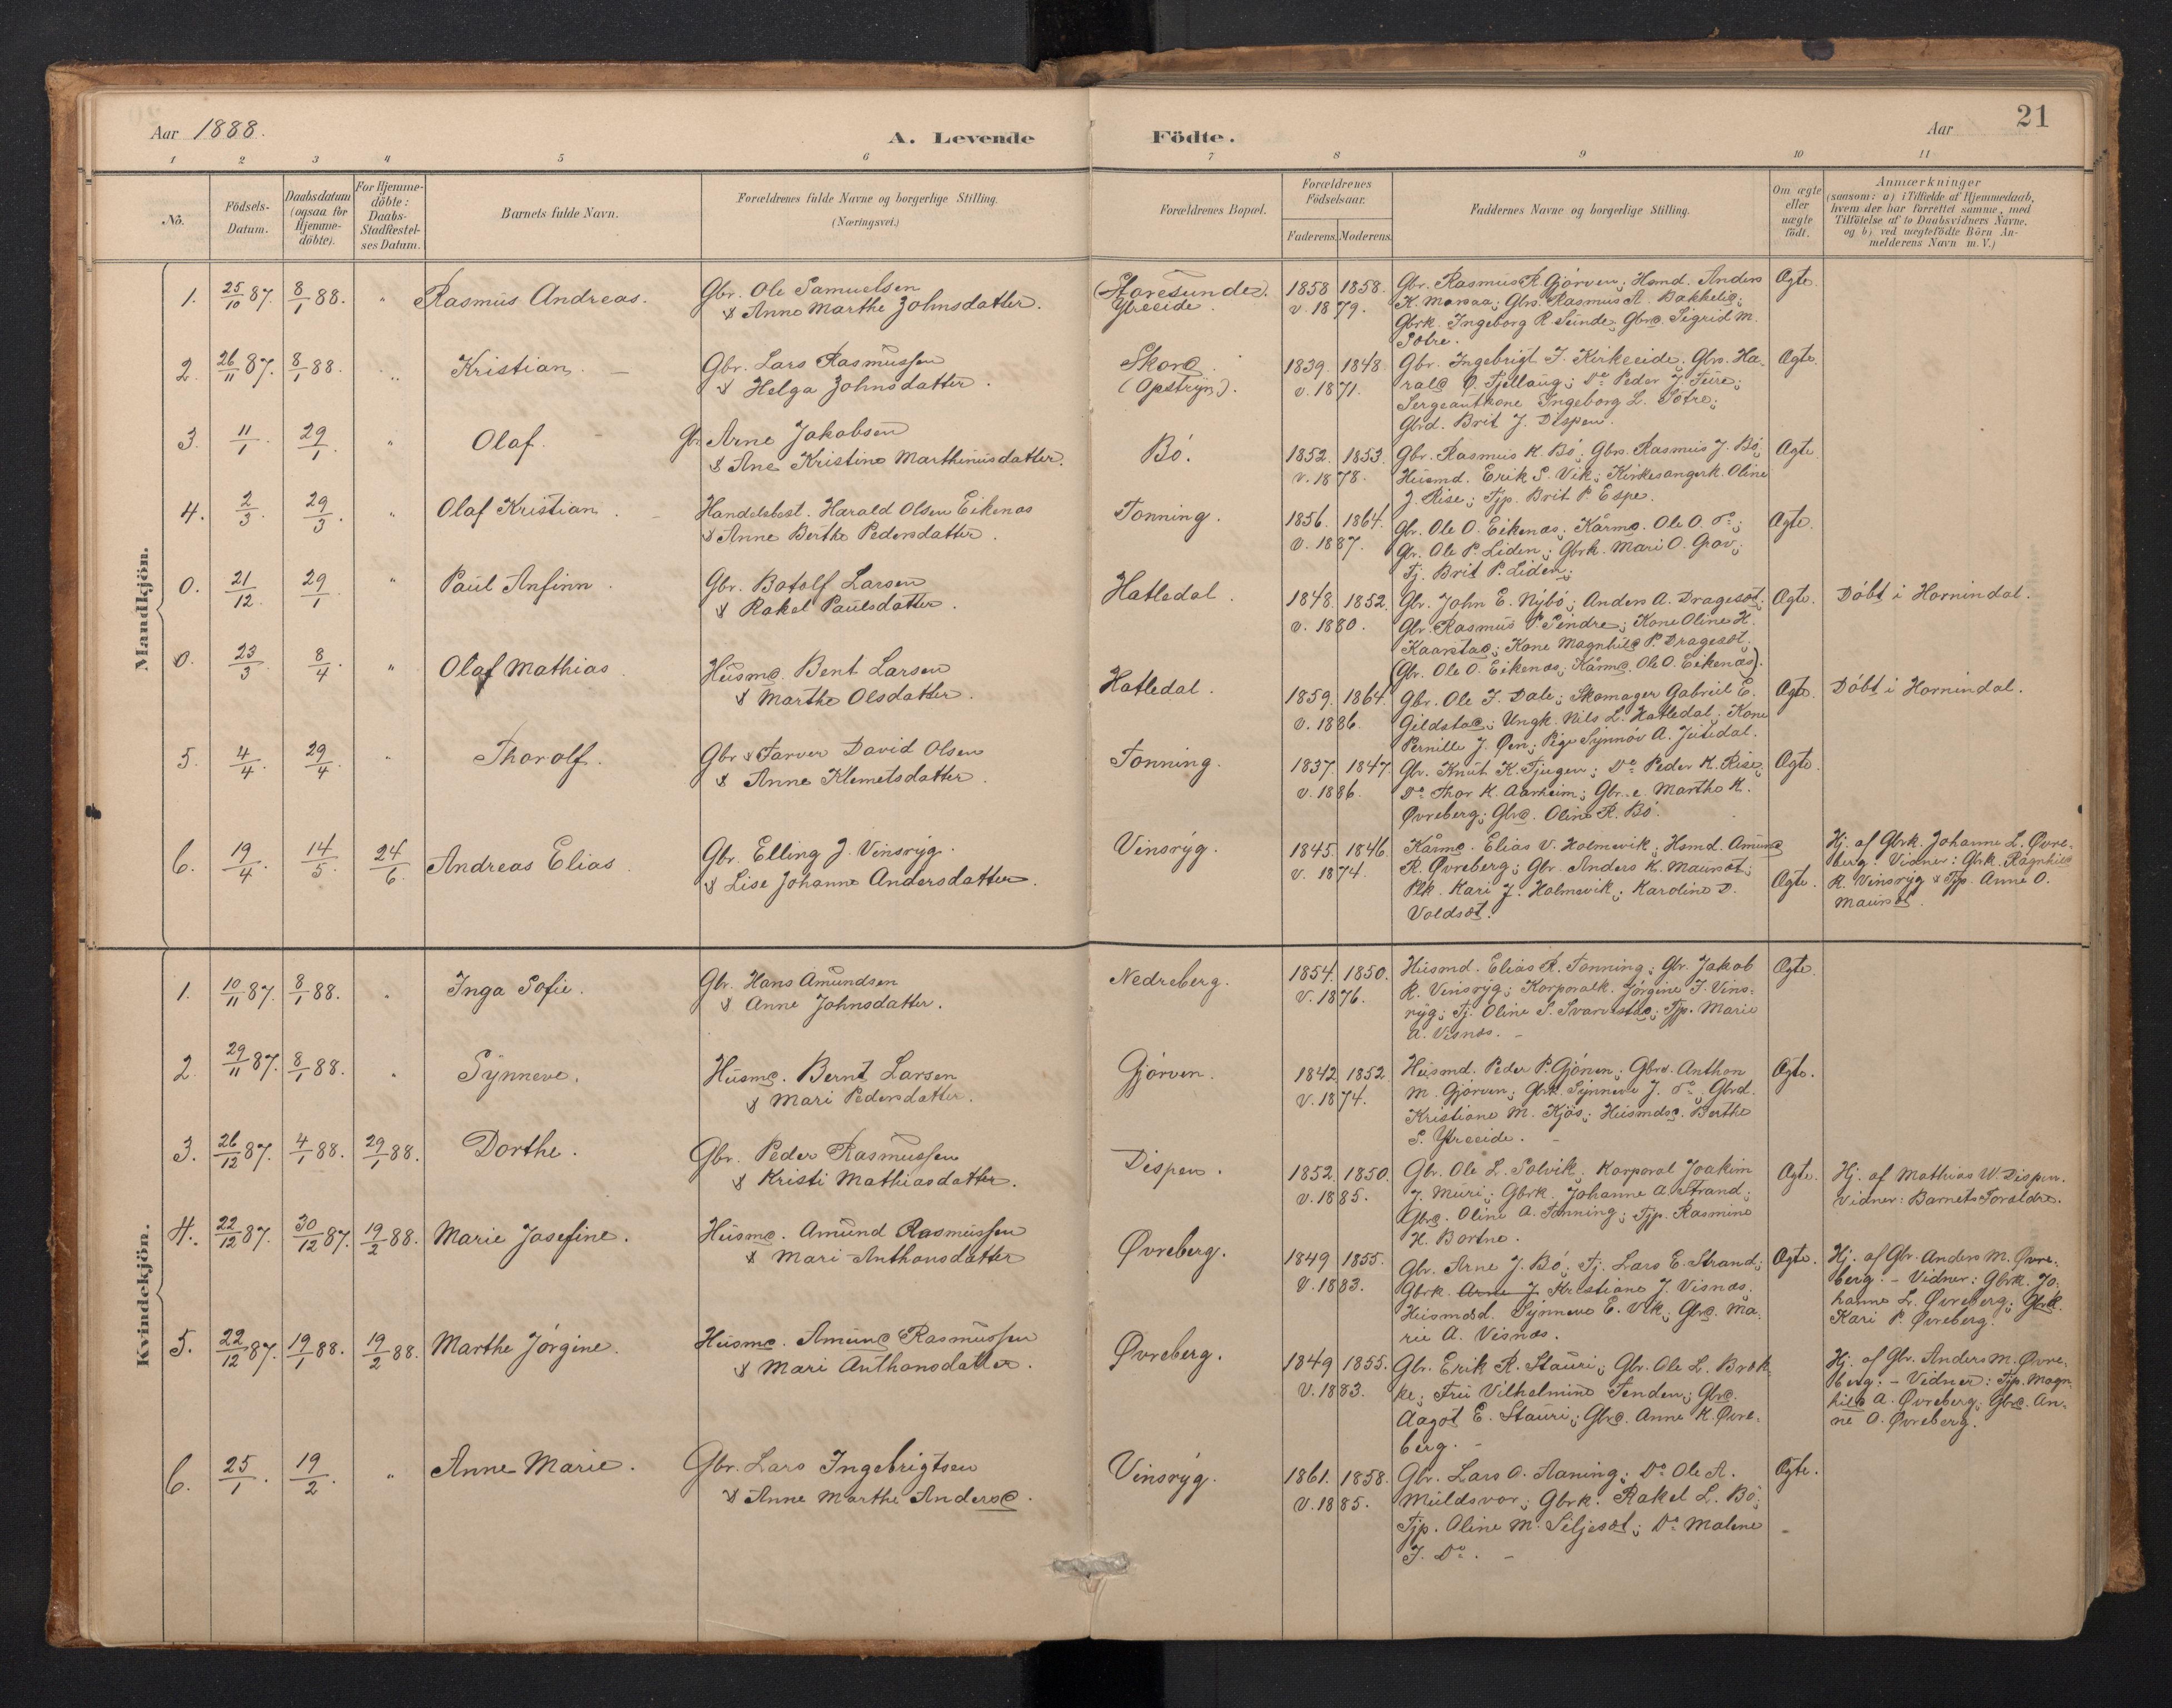 Aar 1888.
A. Levende Födte.
Aar
21
1 2 3 4 5 6 7 8 9 10 11
No.
Födsels-Datum.
Daabsdatum (ogsaa for Hjemme-döbte).
For Hjemme-döbte: Daabs-Stadfæstel-ses Datum.
Barnets fulde Navn.
Forældrenes fulde Navne og borgerlige Stilling.
(Næringsvei.)
Forældrenes Bopæl.
Forældrenes Födselsaar.
Faderens. Moderens.
Faddernes Navne og borgerlige Stilling.
Om ægte eller uægte födt.
Anmærkninger
(saasom: a) i Tilfælde af Hjemmedaab,
hvem der har forrettet samme, med
Tilföielse af to Daabsvidners Navne.
og b) ved uægtefödte Börn An-
melderens Navn m. V.)
Mandkjön.
1. 25/10 87. 8/1 88. " Rasmus Andreas.
Gbr. Ole Samuelsen
& Anne Marthe Johnsdatter.
(Storesunde).
Ytreeide.
1858 1858.
v. 1879.
Gbr. Rasmus R. Gjörven; Hsmd. Anders
K. Marsaa; Gbrs. Rasmus A. Bakkelid;
Gbrk. Ingeborg R. Sunde; Gbrd. Sigrid M.
Sætre.
Ægte.
2. 26/11 87. 8/1 88. " Kristian.
Gbr. Lars Rasmussen
& Helga Johnsdatter.
Skore
(Opstryn).
1839. 1848.
v. 1871.
Gbr. Ingebrigt J. Kirkeeide; Gbrs. Ha-
rald O. Fjellaug; Do Peder J. Teire;
Sergeantkone Ingeborg L. Sætre;
Gbrd. Brit J. Dispen.
Ægte.
3. 11/1. 29/1. " Olaf.
Gbr. Arne Jakobsen
& Ane Kristine Marthinusdatter.
Bö.
1852. 1853.
v. 1878.
Gbr. Rasmus K. Bö; Gbrs. Rasmus J. Bö;
Husmd. Erik S. Vik; Kirkesangerk. Oline
J. Rise; Tjp. Brit P. Espe.
Ægte.
4. 2/3. 29/3. " Olaf Kristian.
Handelsbest. Harald Olsen Eikenæs
& Anne Berthe Pedersdatter.
Tonning.
1856. 1864.
v. 1887.
Gbr. Ole O. Eikenæs; Kårmd. Ole O. Do;
Gbr. Ole P. Liden; Gbrk. Mari O. Grov;
Tj. Brit P. Liden;
Ægte.
0. 21/12. 29/1. " Paul Anfinn.
Gbr. Botolf Larsen
& Rakel Paulsdatter.
Hatledal.
1848. 1852.
v. 1880.
Gbr. John E. Nybö; Anders A. Dragesæt;
Gbr. Rasmus P. Sindre; Kone Oline K.
Kaarstad; Kone Magnhild P. Dragesæt.
(Gbr. Ole O. Eikenæs; Kårmd. Ole O. Eikenæs).
Ægte.
Döbt i Hornindal.
0. 23/3. 8/4. " Olaf Mathias
Husmd. Bent Larsen
& Marthe Olsdatter.
Hatledal.
1859. 1864.
v. 1886.
Gbr. Ole J. Dale; Skomager Gabriel E.
Gildstad; Ungk. Nils L. Hatledal; Kone
Pernille J. Øen; Pige Synnöv A. Jutedal.
Ægte.
Döbt i Hornindal.
5. 4/4. 29/4. " Thorolf.
Gbr. & Farver David Olsen
& Anne Klemetsdatter.
Tonning.
1837. 1847.
v. 1886.
Gbr. Knut K. Tjugen; Do Peder K. Rise;
Do Thor K. Aarheim; Gbr.e. Marthe K.
Øvreberg; Gbrd. Oline R. Bö.
Ægte.
6. 19/4. 14/5. 24/6. Andreas Elias.
Gbr. Elling J. Vinsryg.
& Lise Johanne Andersdatter.
Vinsryg.
1845. 1846.
v. 1874.
Kårmd. Elias V. Holmevik; Hsmd. Amund
R. Øvreberg; Gbr. Anders K. Maursæt;
Plk. Kari J. Holmevik; Karoline D.
Voldsæt.
Ægte.
Hj. af Gbrk. Johanne L. Øvre-
berg. Vidner: Gbrk. Ragnhild
R. Vinsryg & Tjp. Anne O.
Maursæt.
Kvindekjön.
1. 10/11 87. 8/1 88. " Inga Sofie.
Gbr. Hans Amundsen
& Anne Johnsdatter.
Nedreberg.
1854. 1850.
v. 1876.
Husmd. Elias R. Tonning; Gbr. Jakob
R. Vinsryg; Korporalk. Jörgine J. Vins-
ryg; Tj. Oline S. Svarvestad; Tjp. Marie
A. Visnæs.
Ægte.
2. 29/11 87. 8/1 88. " Synneve.
Husmd. Bernt Larsen
& Mari Pedersdatter.
Gjörven.
1842 1852
v. 1874.
Husmd. Peder P. Gjörven; Gbrs. Anthon
M. Gjörven; Gbrk. Synneve J. Do; Gbrd.
Kristiane M. Kjös; Husmdsd. Berthe
S. Ytreeide.
Ægte.
3. 26/12 87. 4/1 88. 29/1 88. Dorthe.
Gbr. Peder Rasmussen
& Kristi Mathiasdatter.
Dispen.
1852. 1850.
v. 1885.
Gbr. Ole L. Solvik; Korporal Joakim
J. Muri; Gbrk. Johanne A. Strand;
Gbrd. Oline A. Tonning; Tjp. Rasmine
H. Bortne.
Ægte.
Hj. af Mathias W. Dispen.
Vidner: Barnets Forældre.
4. 22/12 87. 30/12 87. 19/2 88. Marie Josefine.
Husmd. Amund Rasmussen
& Mari Anthonsdatter
Øvreberg.
1849 1855.
v. 1883.
Gbr. Arne J. Bö; Tj. Lars E. Strand;
Gbrk. Arne J. Kristiane J. Visnæs;
Husmdsd. Synneve E. Vik; Gbrd. Ma-
rie A. Visnæs.
Ægte.
Hj. af Gbr. Anders M. Øvre-
berg. - Vidner: Gbrk. Jo-
hanne L. Øvreberg; Gbrk.
Kari P. Øvreberg.
5. 22/12 87. 19/1 88. 19/2 88. Marthe Jörgine.
Husmd. Amund Rasmussen
& Mari Anthonsdatter.
Øvreberg.
1849 1855.
v. 1883.
Gbr. Erik R. Stauri; Gbr. Ole L. Bræk-
ke; Fru Vilhelmine Tenden; Gbrd.
Aagot E. Stauri; Gbrd. Anne K. Øvre-
berg.
Hj. af Gbr. Anders M. Øvre-
berg. - Vidner: Tjp. Magn-
hild A. Øvreberg; Gbrd. An-
ne O. Øvreberg.
6. 25/1. 19/2. " Anne Marie.
Gbr. Lars Ingebrigtsen
& Anne Marthe Andersd.
Vinsryg.
1861. 1858.
v. 1885.
Gbr. Lars O. Aaning; Do Ole A.
Muldsvor; Gbrk. Rakel L. Bö;
Tjp. Oline M. Siljesæt; Do Malene
J. Do.
Ægte.